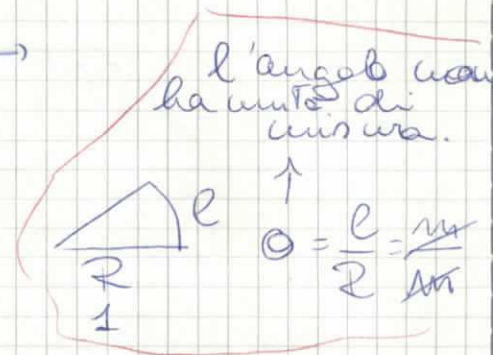 l'angolo non
ha unità di
misura.
l
R
1
Θ = l/R = m/m